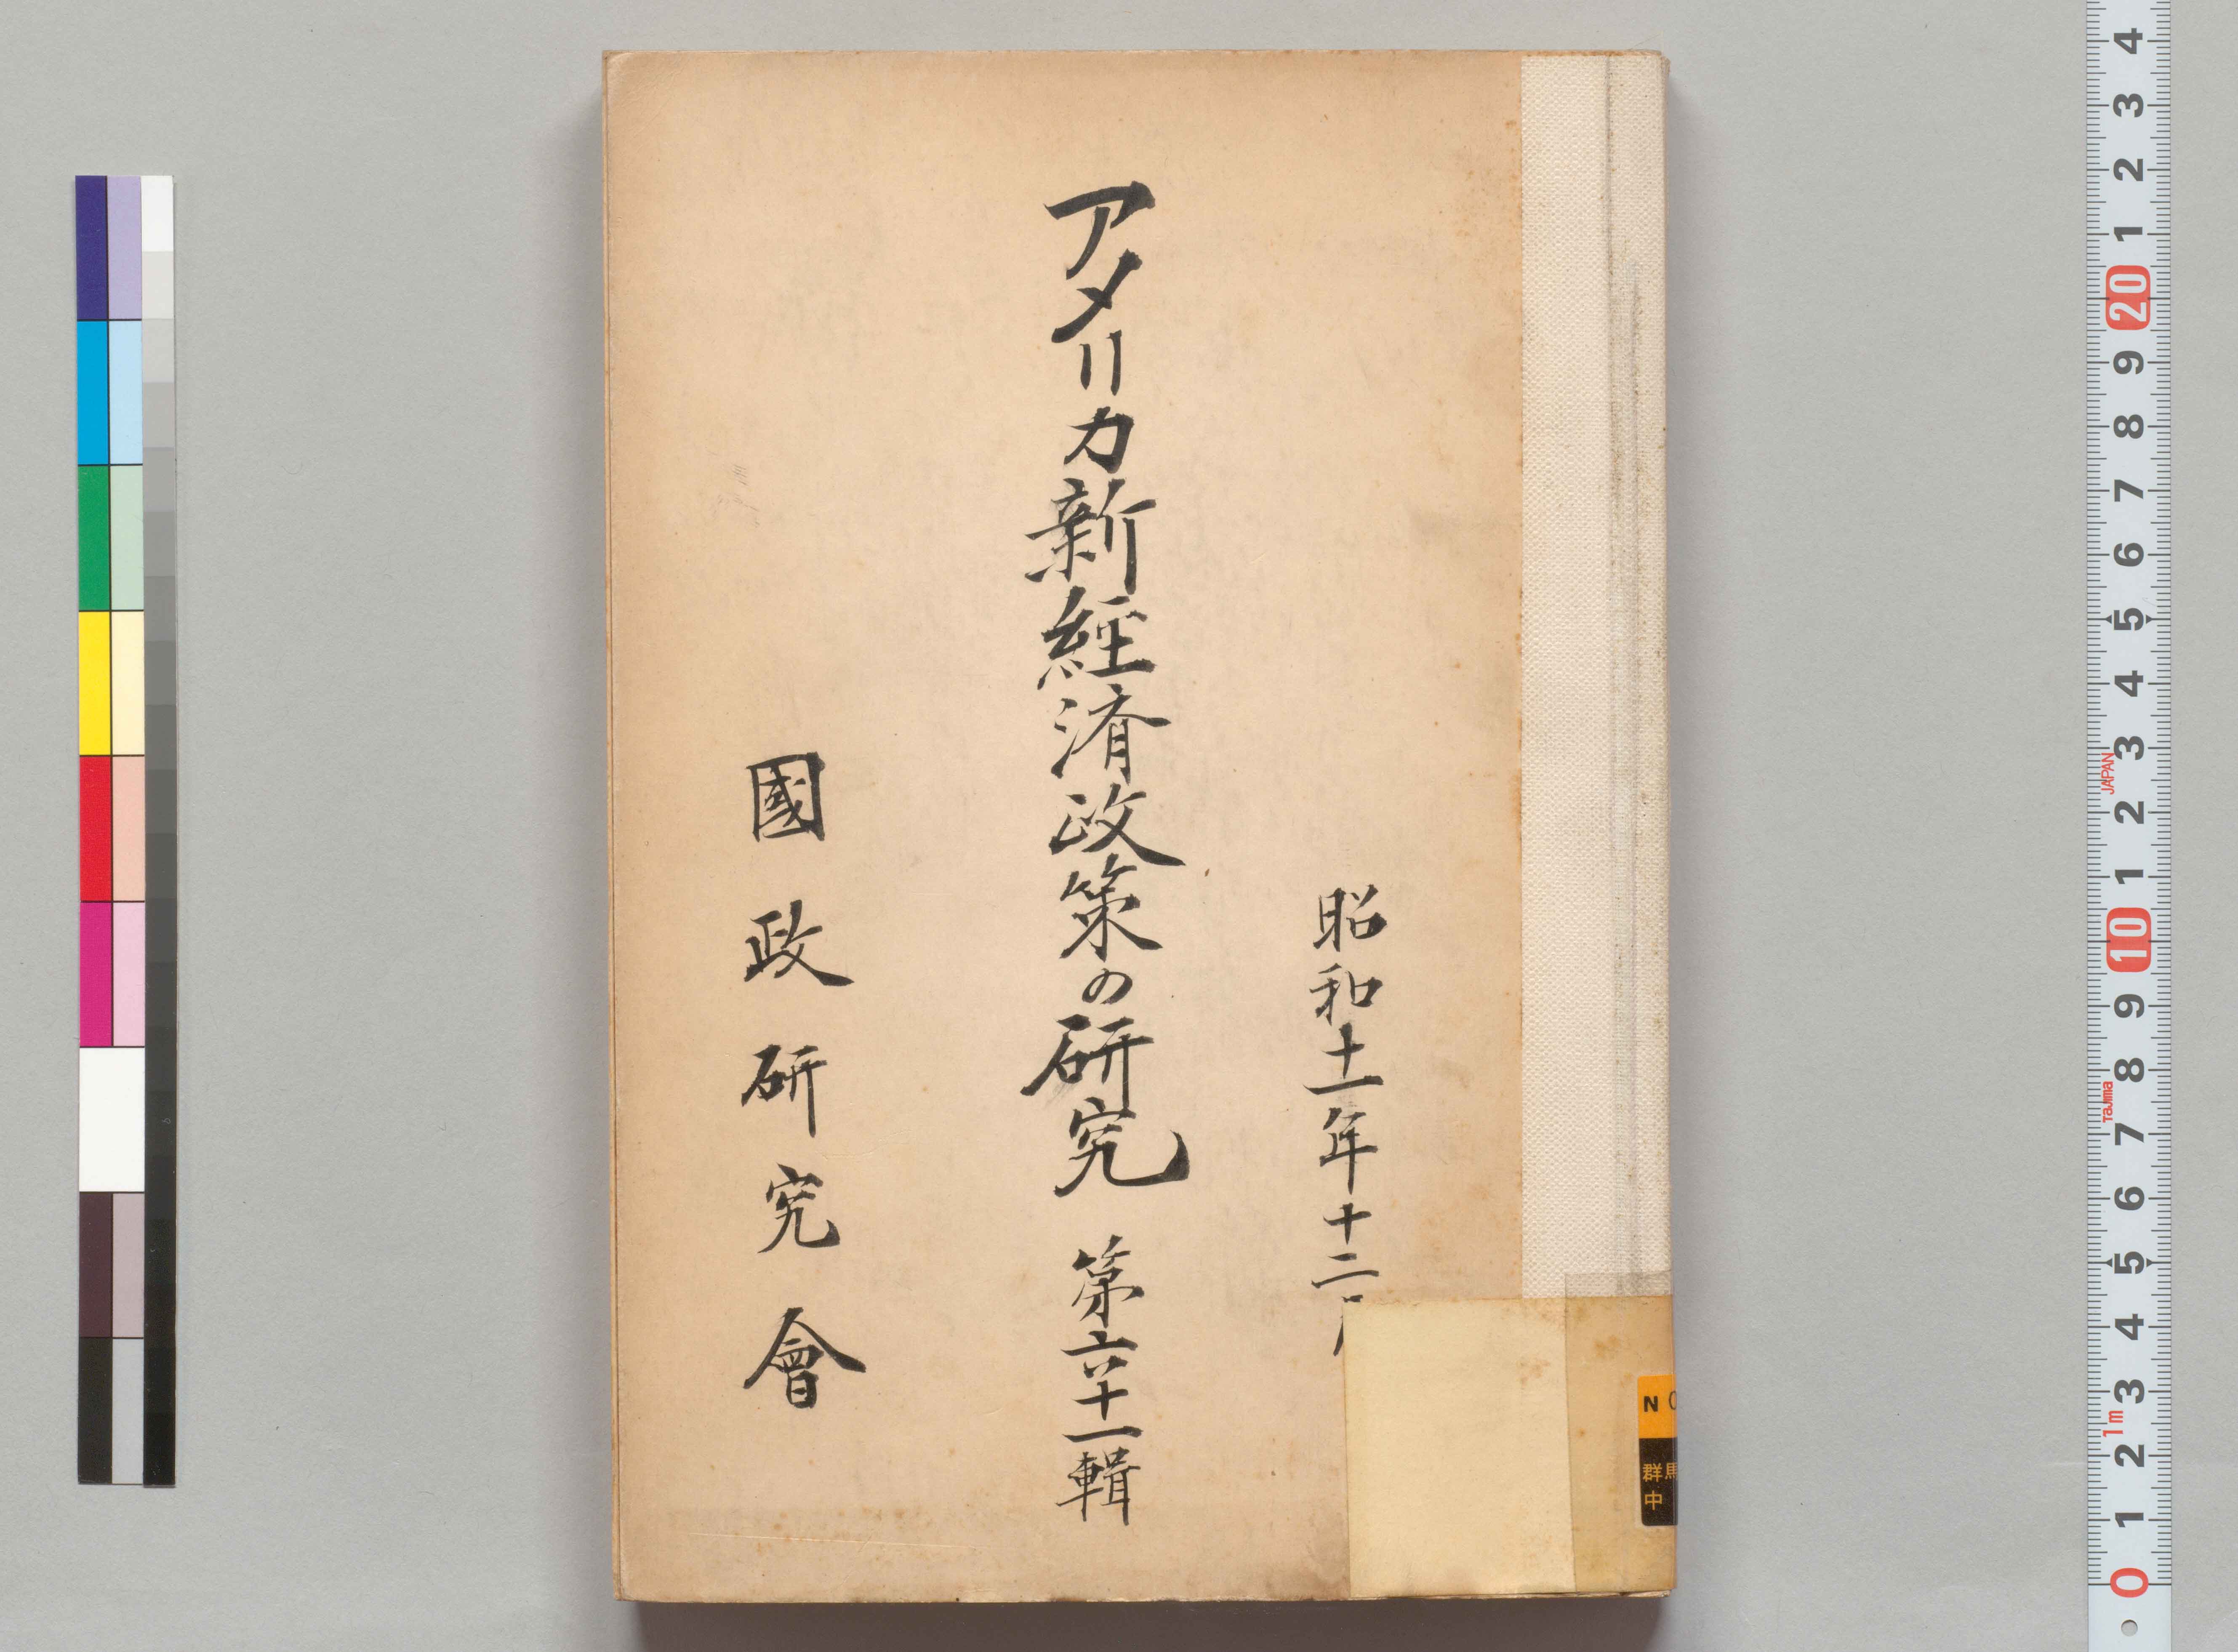 昭和十一年十二月
アメリカ新經済政策の研究 第六十一輯
國政研究會
N
群馬
中
4
3
2
1
20
9
8
7
6
5
4
3
JAPAN
2
1
10
9
8
Tajima
7
6
5
4
3
1m
2
1
0